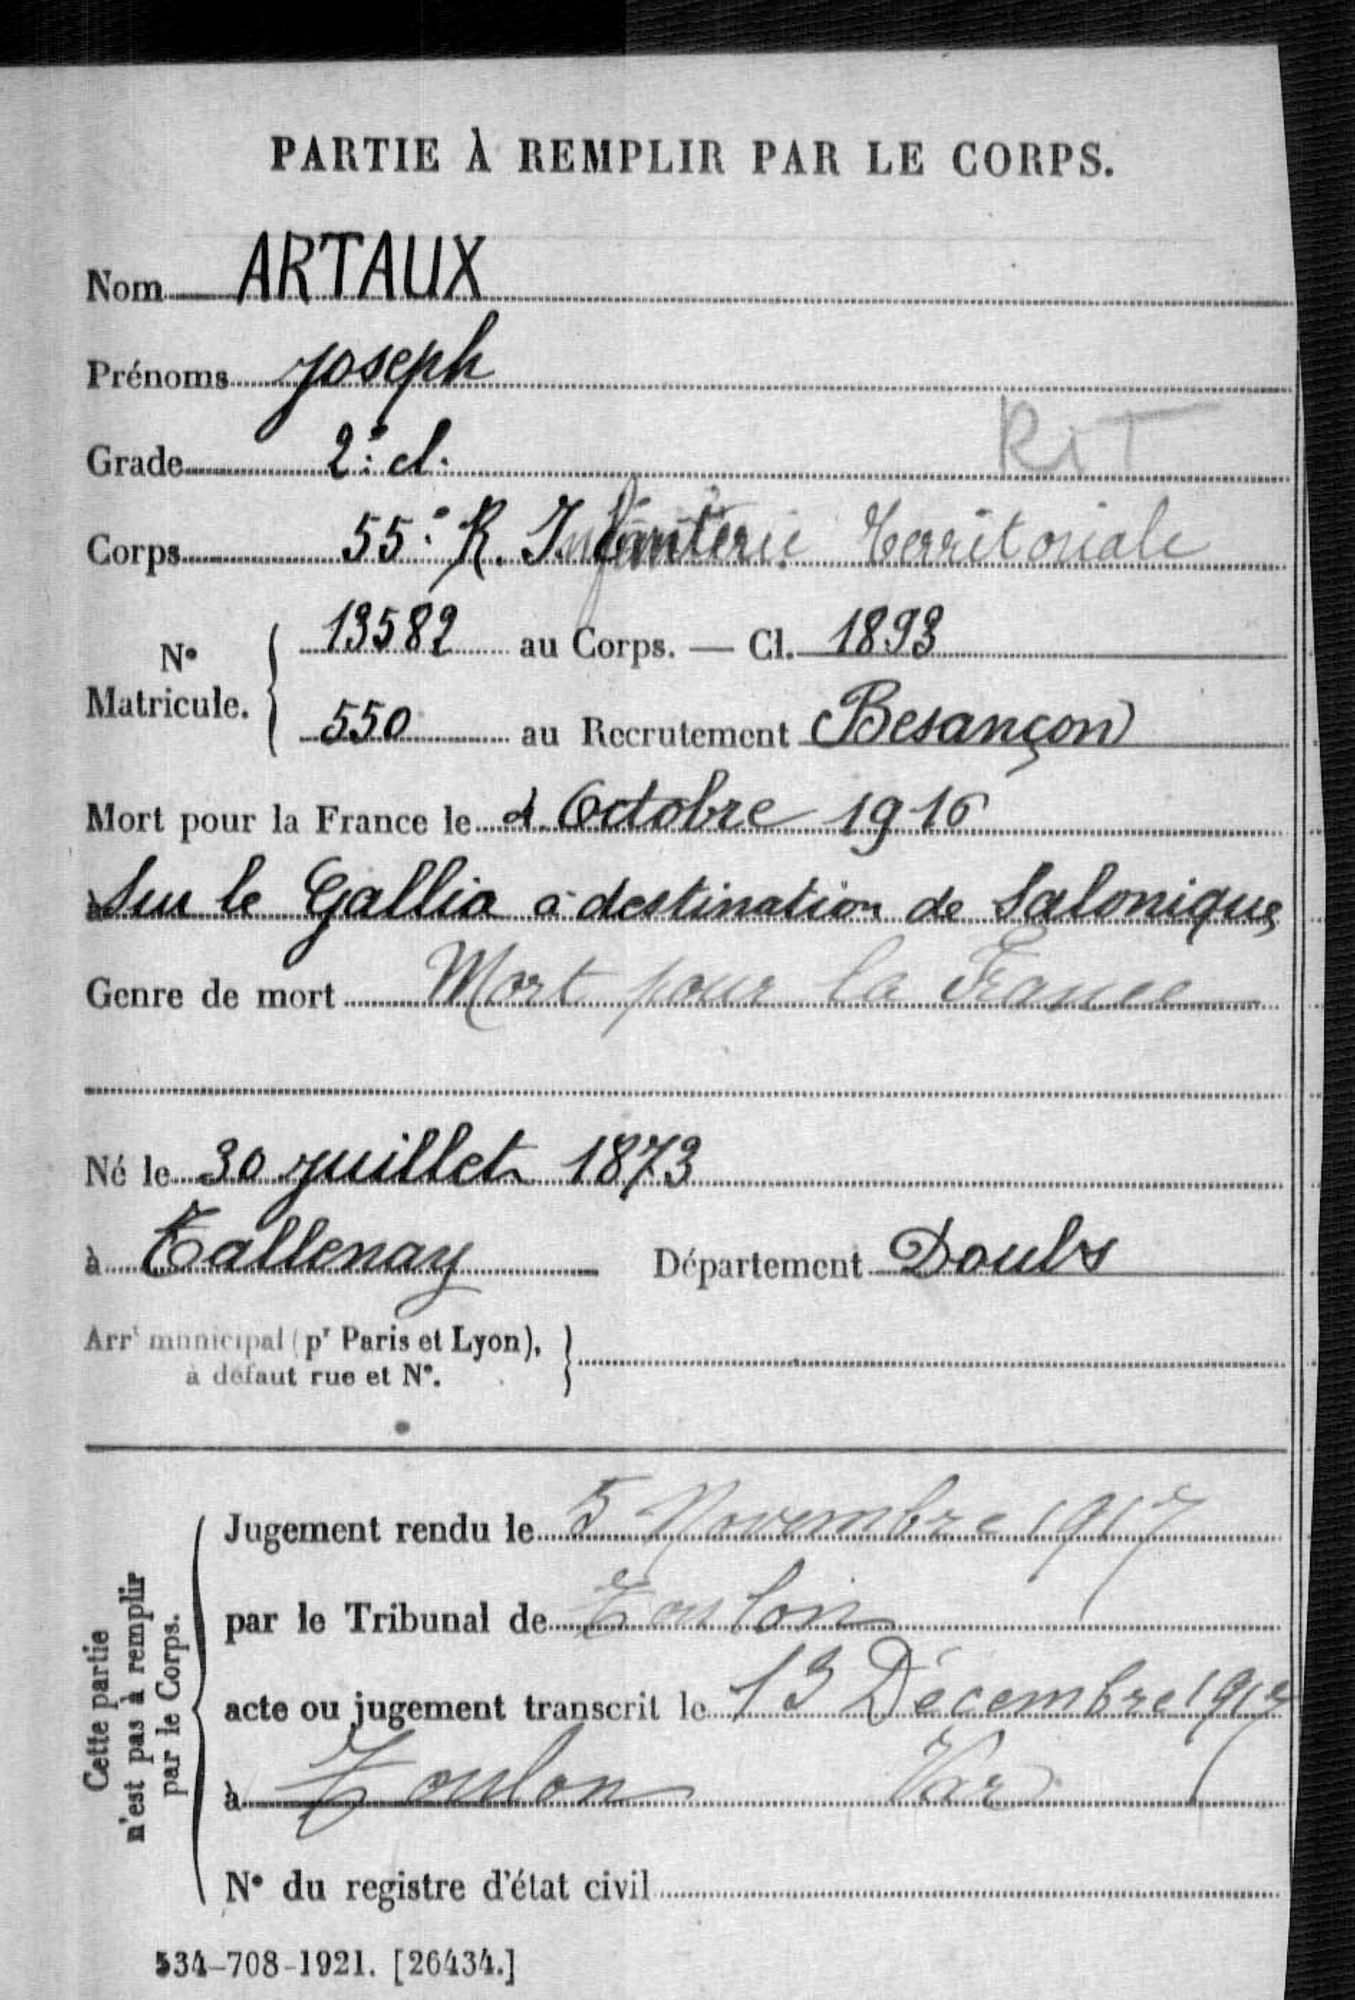 PARTIE À REMPLIR PAR LE CORPS.
Nom ARTAUX
Prénoms Joseph
Grade 2e cl.
RIT
Corps 55e R. Infanterie Territoriale
N° Matricule. { 13582 au Corps. — Cl. 1893
550 au Recrutement Besançon
Mort pour la France le 4 Octobre 1916
à Sur le Gallia à destination de Salonique
Genre de mort Mort pour la France
Né le 30 juillet 1873
à Tallenay Département Doubs
Arrt municipal (pr Paris et Lyon), }
à défaut rue et N°.
Cette partie
n'est pas à remplir
par le Corps.
Jugement rendu le 5 Novembre 1917
par le Tribunal de Toulon
acte ou jugement transcrit le 13 Décembre 1917
à Toulon Var
N° du registre d'état civil
534-708-1921. [26434.]